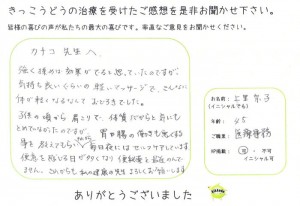 きっこうどうの治療を受けたご感想を是非お聞かせ下さい。
皆様の喜びの声が私たちの最大の喜びです。率直なご意見をお聞かせください。
カチコ先生へ
強く揉めば効果がでると思っていたのですが
気持ち良いくらいの軽いマッサージで、こんなに
体が軽くなるなんておどろきでした。
子供の頃から肩こりで、体質だからと気にも
とめてなかったのですが、胃腸の働きも悪くなる
事を教えてもらい毎日夜にはセルフケアしています
便意を感じる日が多くなり便秘薬を飲んでま
せん。これからも私の健康の先生よろしくお願いします
お名前：
(イニシャルでも)
年齢：45
ご職業：医療事務
HP掲載：可・不可
イニシャル可
ありがとうございました